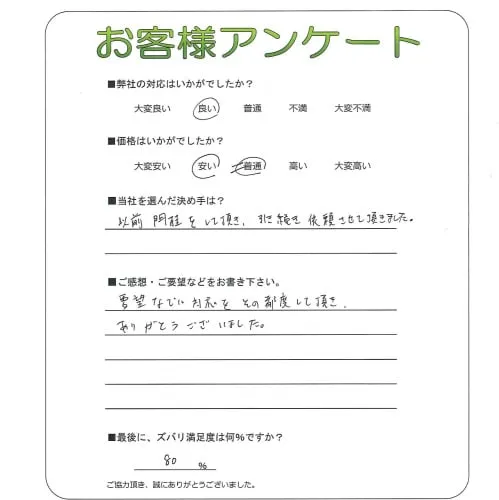 お客様アンケート
■弊社の対応はいかがでしたか？
大変良い 良い 普通 不満 大変不満
■価格はいかがでしたか？
大変安い 安い 普通 高い 大変高い
■当社を選んだ決め手は？
以前 をして頂き、引き続き依頼させて頂きました。
■ご感想・ご要望などをお書き下さい。
要望などに対応をその都度して頂き、
ありがとうございました。
■最後に、ズバリ満足度は何%ですか？
80 %
ご協力頂き、誠にありがとうございました。